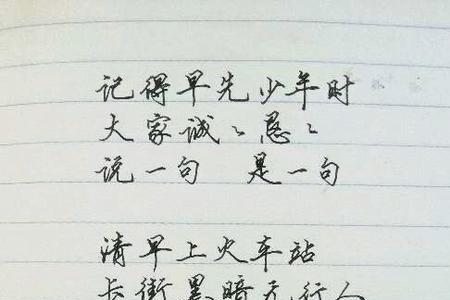 记得早先少年时
大家诚诚恳恳
说一句 是一句
清早上火车站
长街黑暗无行人